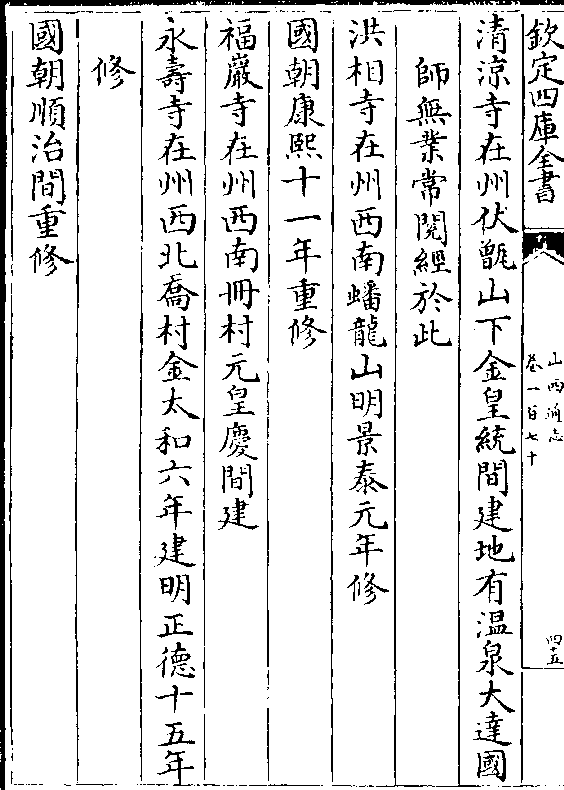 欽定四庫全書
山西通志
卷一百七十
四十五
清涼寺在州伏甑山下金皇統間建地有温泉大達國
師無業常閱經於此
洪相寺在州西南蟠龍山明景泰元年修
國朝康熙十一年重修
福巖寺在州西南冊村元皇慶間建
永壽寺在州西北喬村金太和六年建明正德十五年
修
國朝順治間重修